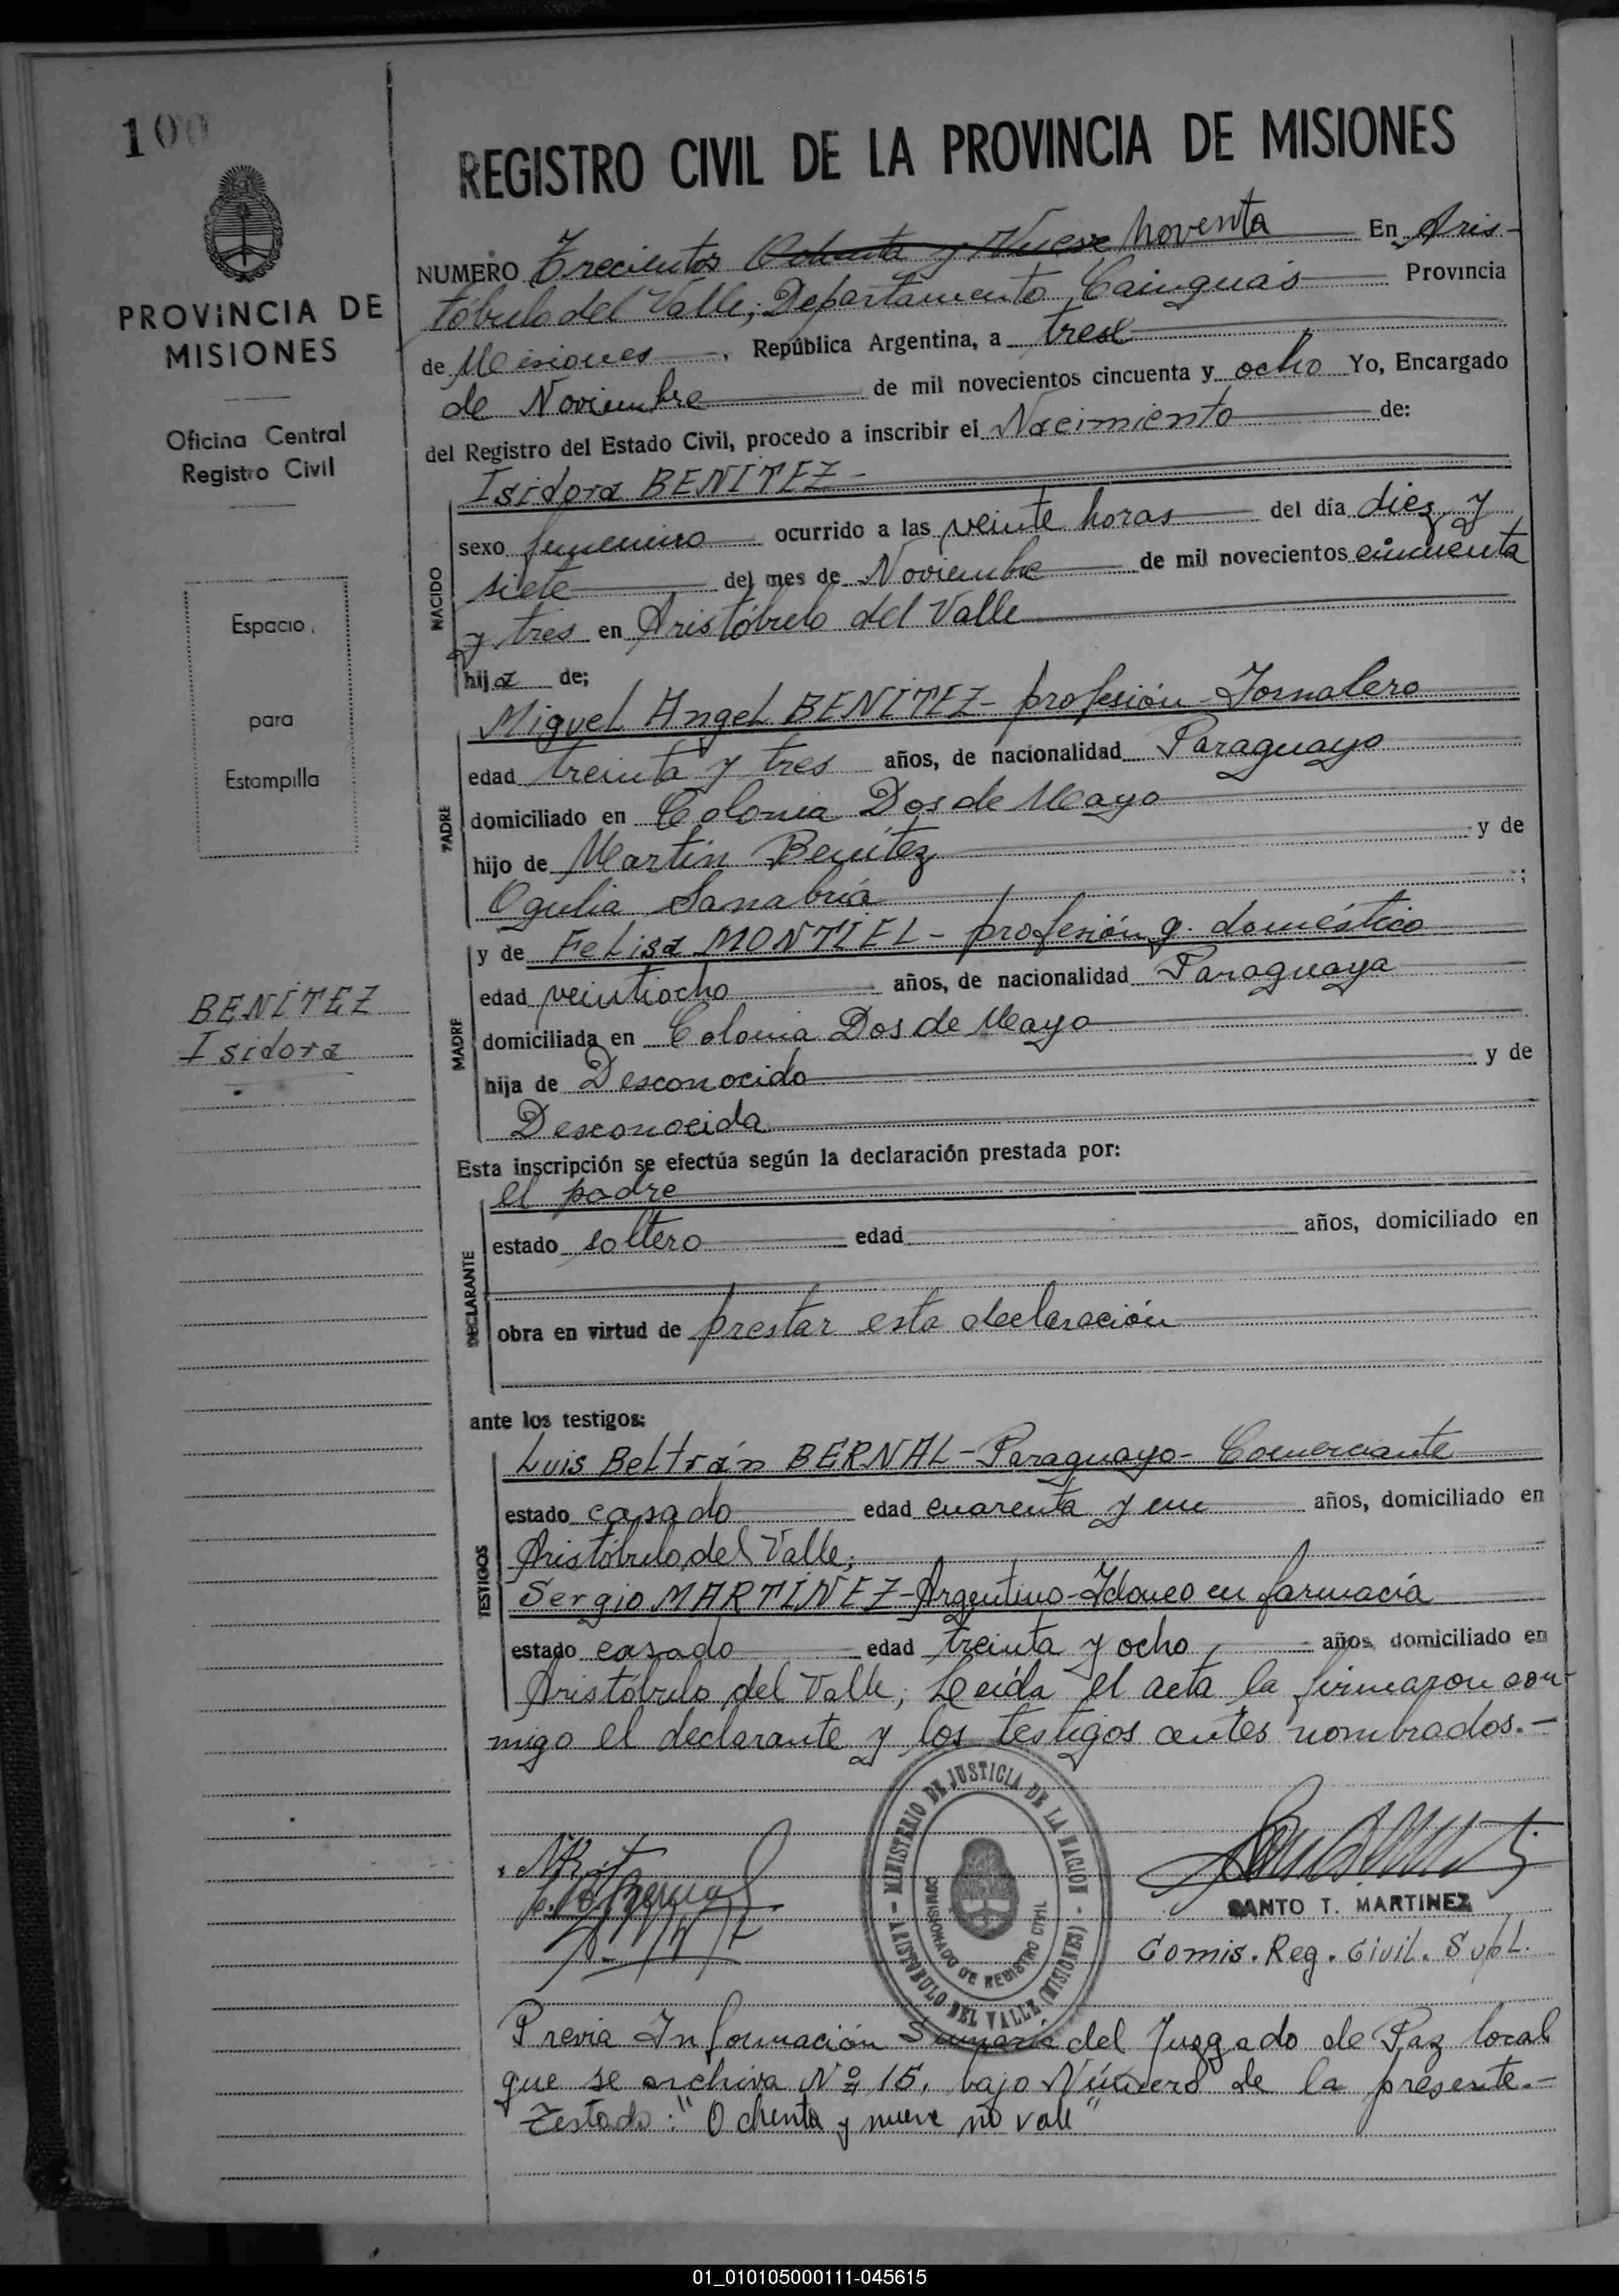 100
PROVINCIA DE
MISIONES
Oficina Central
Registro Civil
Espacio
para
Estampilla
BENÍTEZ
Isidora
REGISTRO CIVIL DE LA PROVINCIA DE MISIONES
NUMERO Trecientos Ochenta y Nueve Noventa En Aris-
tóbulo del Valle, Departamento Cainguás Provincia
de Misiones, República Argentina, a trece
de Noviembre de mil novecientos cincuenta y ocho Yo, Encargado
del Registro del Estado Civil, procedo a inscribir el Nacimiento de:
Isidora BENÍTEZ-
NACIDO
sexo femenino ocurrido a las veinte horas del día diez y
siete del mes de Noviembre de mil novecientos cincuenta
y tres en Aristóbulo del Valle
hija de;
PADRE
Miguel Angel BENÍTEZ- profesión Jornalero
edad treinta y tres años, de nacionalidad Paraguayo
domiciliado en Colonia Dos de Mayo
hijo de Martín Benítez y de
Ogulia Sanabria ;
MADRE
y de Felisa MONTIEL- profesión q. doméstico
edad veintiocho años, de nacionalidad Paraguaya
domiciliada en Colonia Dos de Mayo
hija de Desconocido y de
Desconocida
Esta inscripción se efectúa según la declaración prestada por:
DECLARANTE
el padre
estado soltero edad años, domiciliado en
obra en virtud de prestar esta declaración
ante los testigos:
TESTIGOS
Luis Beltrán BERNAL-Paraguayo-Comerciante
estado casado edad cuarenta y un años, domiciliado en
Aristóbulo del Valle;
Sergio MARTÍNEZ-Argentino-Idoneo en farmacia
estado casado edad treinta y ocho, años, domiciliado en
Aristóbulo del Valle; Leída el acta la firmaron con-
migo el declarante y los testigos antes nombrados.-
MINISTERIO DE JUSTICIA DE LA NACION
COMISIONADO DE REGISTRO CIVIL
ARISTOBULO DEL VALLE (MISIONES)
SANTO T. MARTINEZ
Comis. Reg. Civil. Supl.
Previa Información Sumaria del Juzgado de Paz local
que se archiva Nº 15, bajo Número de la presente.-
Testado: "Ochenta y nueve no vale"
01_010105000111-045615